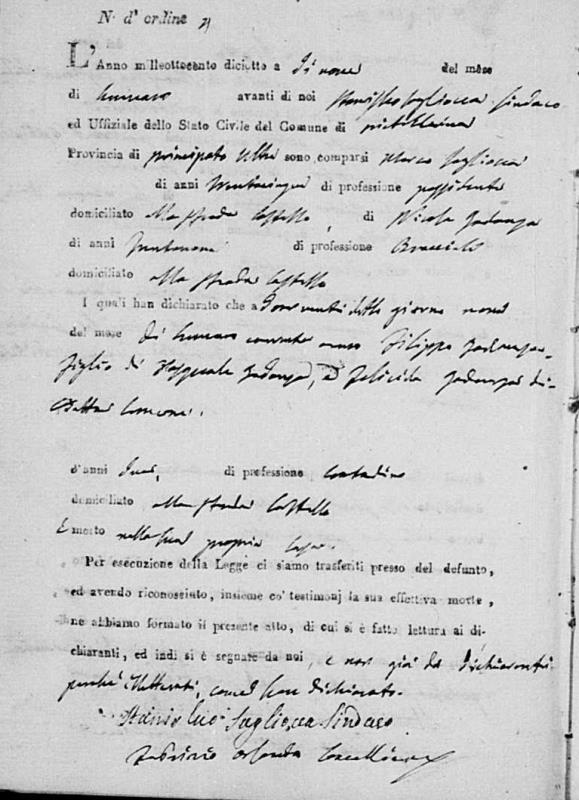 N. d' ordine
L'Anno milleottocento diciotto a dì nove del mese
di Gennaro avanti di noi Stanislao Sagliocca Sindaco
ed Uffiziale dello Stato Civile del Comune di
Provincia di principato Ultra sono comparsi Marco Sagliocca
di anni trentacinque di professione possidente
domiciliato alla strada Castello, di Nicola
di anni trentanove di professione Bracciale
domiciliato alla strada Castello
I quali han dichiarato che a giorno nove
del mese di Gennaro corrente anno Filippo
figlio di Pasquale, e Felicita di
detta Comune.
d'anni di professione contadino
domiciliato alla strada Castello
È morto nella sua propria casa.
Per esecuzione della Legge ci siamo trasferiti presso del defunto,
ed avendo riconosciuto, insieme co' testimonj la sua effettiva morte,
ne abbiamo formato il presente atto, di cui si è fatto lettura ai di-
chiaranti, ed indi si è segnato da noi, e non già da dichiaranti
perché illetterati, come han dichiarato.
Sagliocca Sindaco
Fabrizio Orlando Cancelliere